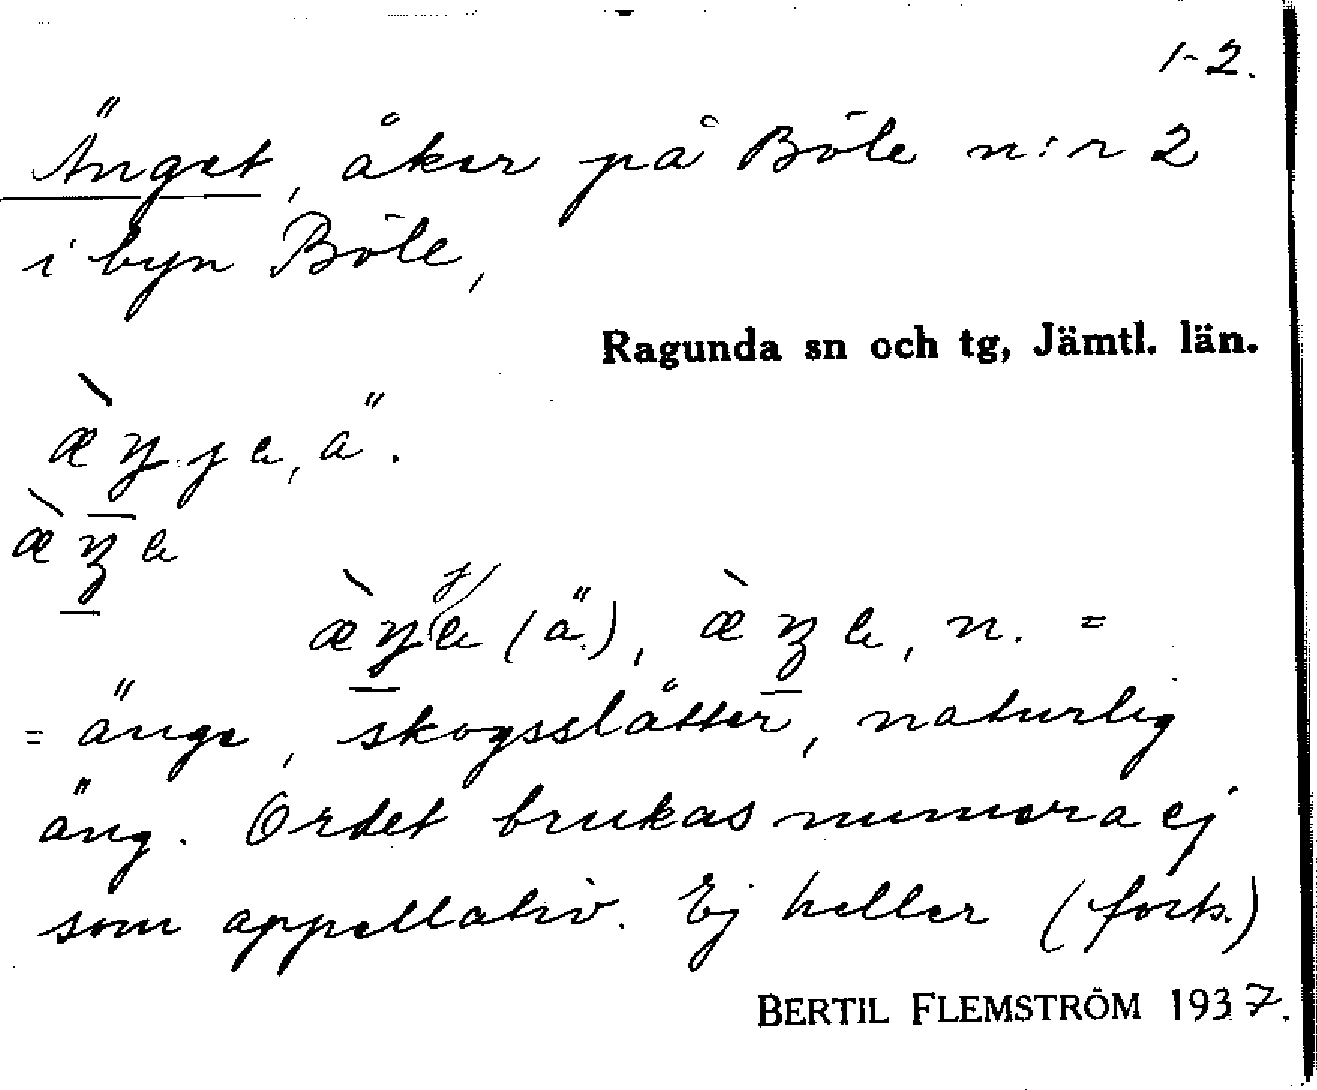 1-2.
Änget, åker på Böle n:r 2
i byn Böle,
Ragunda sn och tg, Jämtl. län.
æ̀ŋje, ä.
æ̀ŋe
æ̀ŋje (ä.), æ̀ŋe, n. =
= änge, skogsslåtter, naturlig
äng. Ordet brukas numera ej
som appellativ. Ej heller (forts.)
BERTIL FLEMSTRÖM 1937.